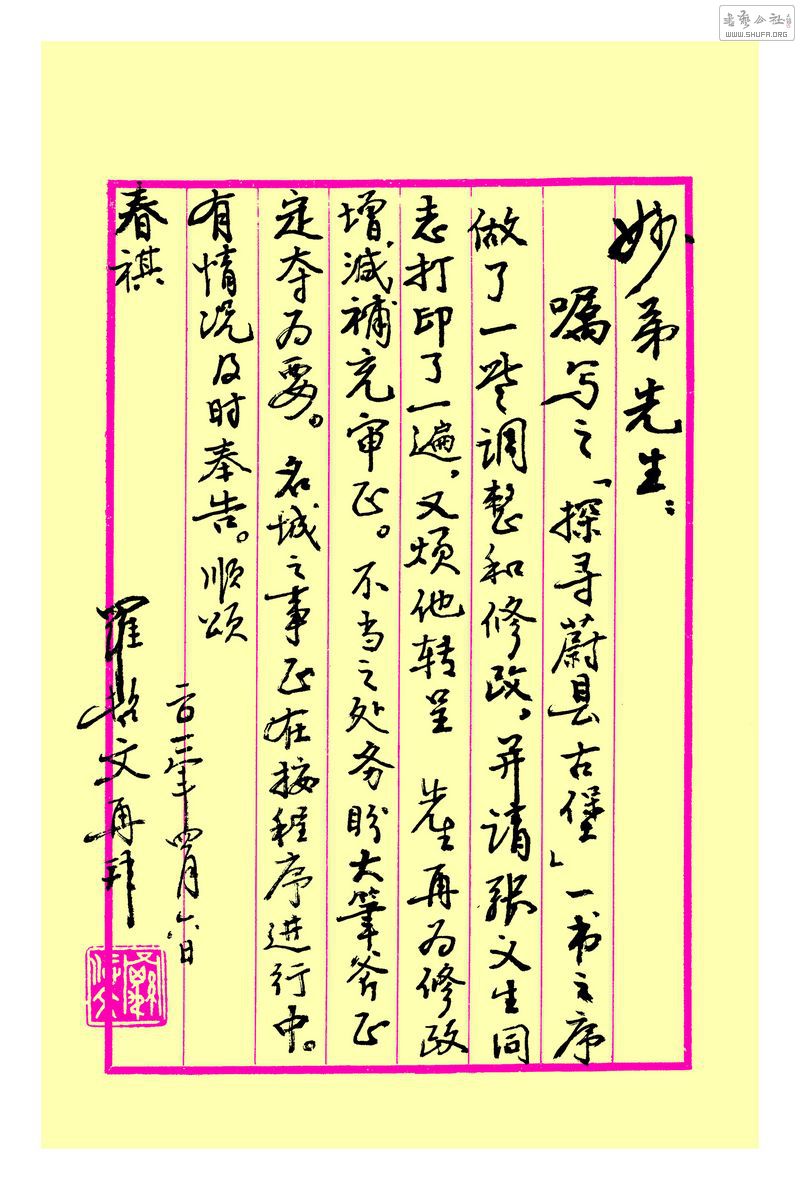 妙弟先生：
嘱写之「探寻蔚县古堡」一书之序
做了一些调整和修改，并请张文生同
志打印了一遍，又烦他转呈 先生再为修改
增减补充审正。不当之处务盼大笔斧正
定夺为要。名城之事正在按程序进行中。
有情况及时奉告。顺颂
春祺
罗哲文再拜
二〇一二年四月六日
WWW.SHUFA.ORG